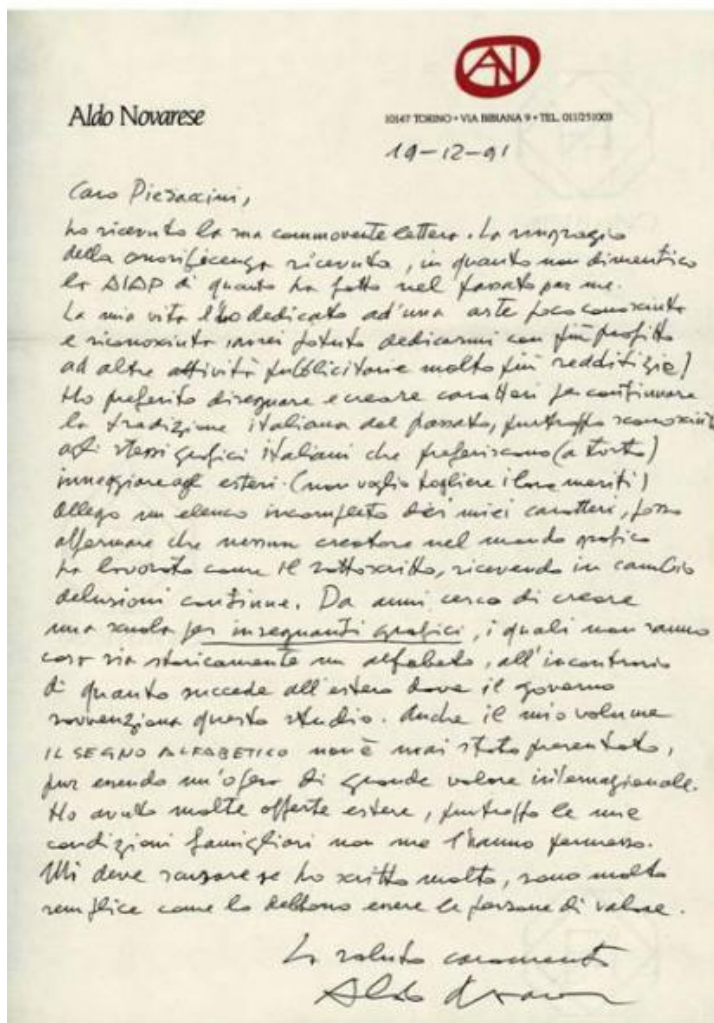 AN
Aldo Novarese
10147 TORINO • VIA BIBIANA 9 • TEL. 011/251003
19-12-91
Caro Pieraccini,
ho ricevuto la sua commovente lettera. La ringrazio
della onorificenza ricevuta, in quanto non dimentico
la AIAP di quanto ha fatto nel passato per me.
La mia vita l'ho dedicato ad'una arte poco conosciuta
e riconosciuta avrei potuto dedicarmi con più profitto
ad altre attività pubblicitarie molto più redditizie)
Ho preferito disegnare e creare caratteri per continuare
la tradizione italiana del passato, purtroppo sconosciuta
agli stessi grafici italiani che preferiscono (a torto)
inneggiare agli esteri. (non voglio togliere i loro meriti)
Allego un elenco incompleto dei miei caratteri, posso
affermare che nessun creatore nel mondo grafico
ha lavorato come il sottoscritto, ricevendo in cambio
delusioni continue. Da anni cerco di creare
una scuola per insegnanti grafici, i quali non sanno
cosa sia storicamente un alfabeto, all'incontrario
di quanto succede all'estero dove il governo
sovvenziona questo studio. Anche il mio volume
IL SEGNO ALFABETICO non è mai stato presentato,
pur essendo un'opera di grande valore internazionale.
Ho avuto molte offerte estere, purtroppo le mie
condizioni famigliari non me l'hanno permesso.
Mi deve scusare se ho scritto molto, sono molto
semplice come lo debbono essere le persone di valore.
La saluto caramente
Aldo Novarese